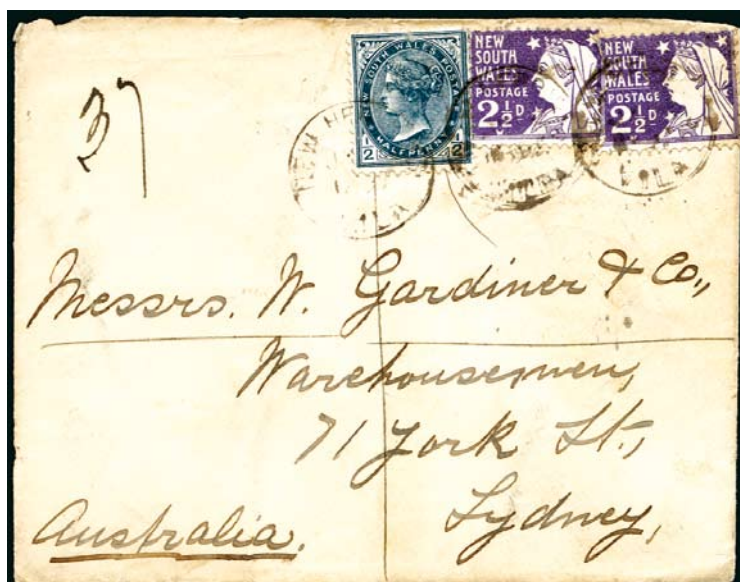 NEW SOUTH WALES POSTAGE
HALFPENNY
1/2 1/2
NEW
SOUTH
WALES
POSTAGE
2 1/2 D
NEW
SOUTH
WALES
POSTAGE
2 1/2 D
37
NEW
Messrs. W. Gardiner & Co.,
Warehousemen,
71 York St.,
Sydney,
Australia.